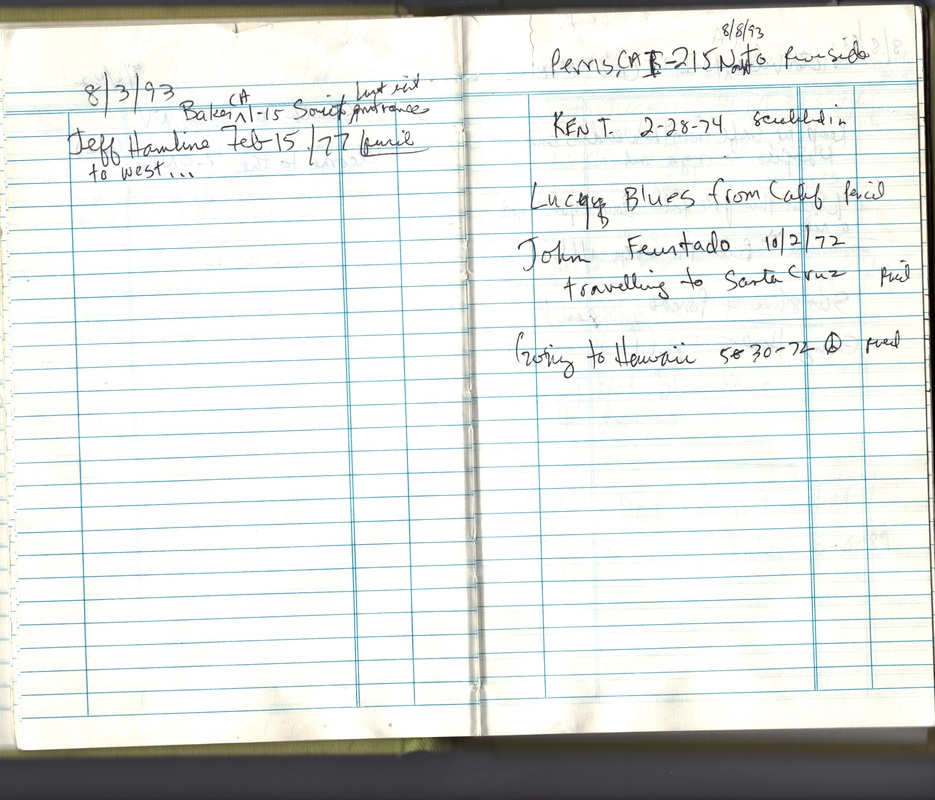 8/3/93
Baker CA I-15 South last exit entrance
Jeff Hamline Feb 15/77 pencil
to west...
8/8/93
Perris, CA I-215 North to Riverside
KEN T. 2-28-74 scratched in
Lucky Blues from Calif pencil
John 10/2/72
travelling to Santa Cruz pencil
Going to Hawaii 5-30-72 ☮ pencil